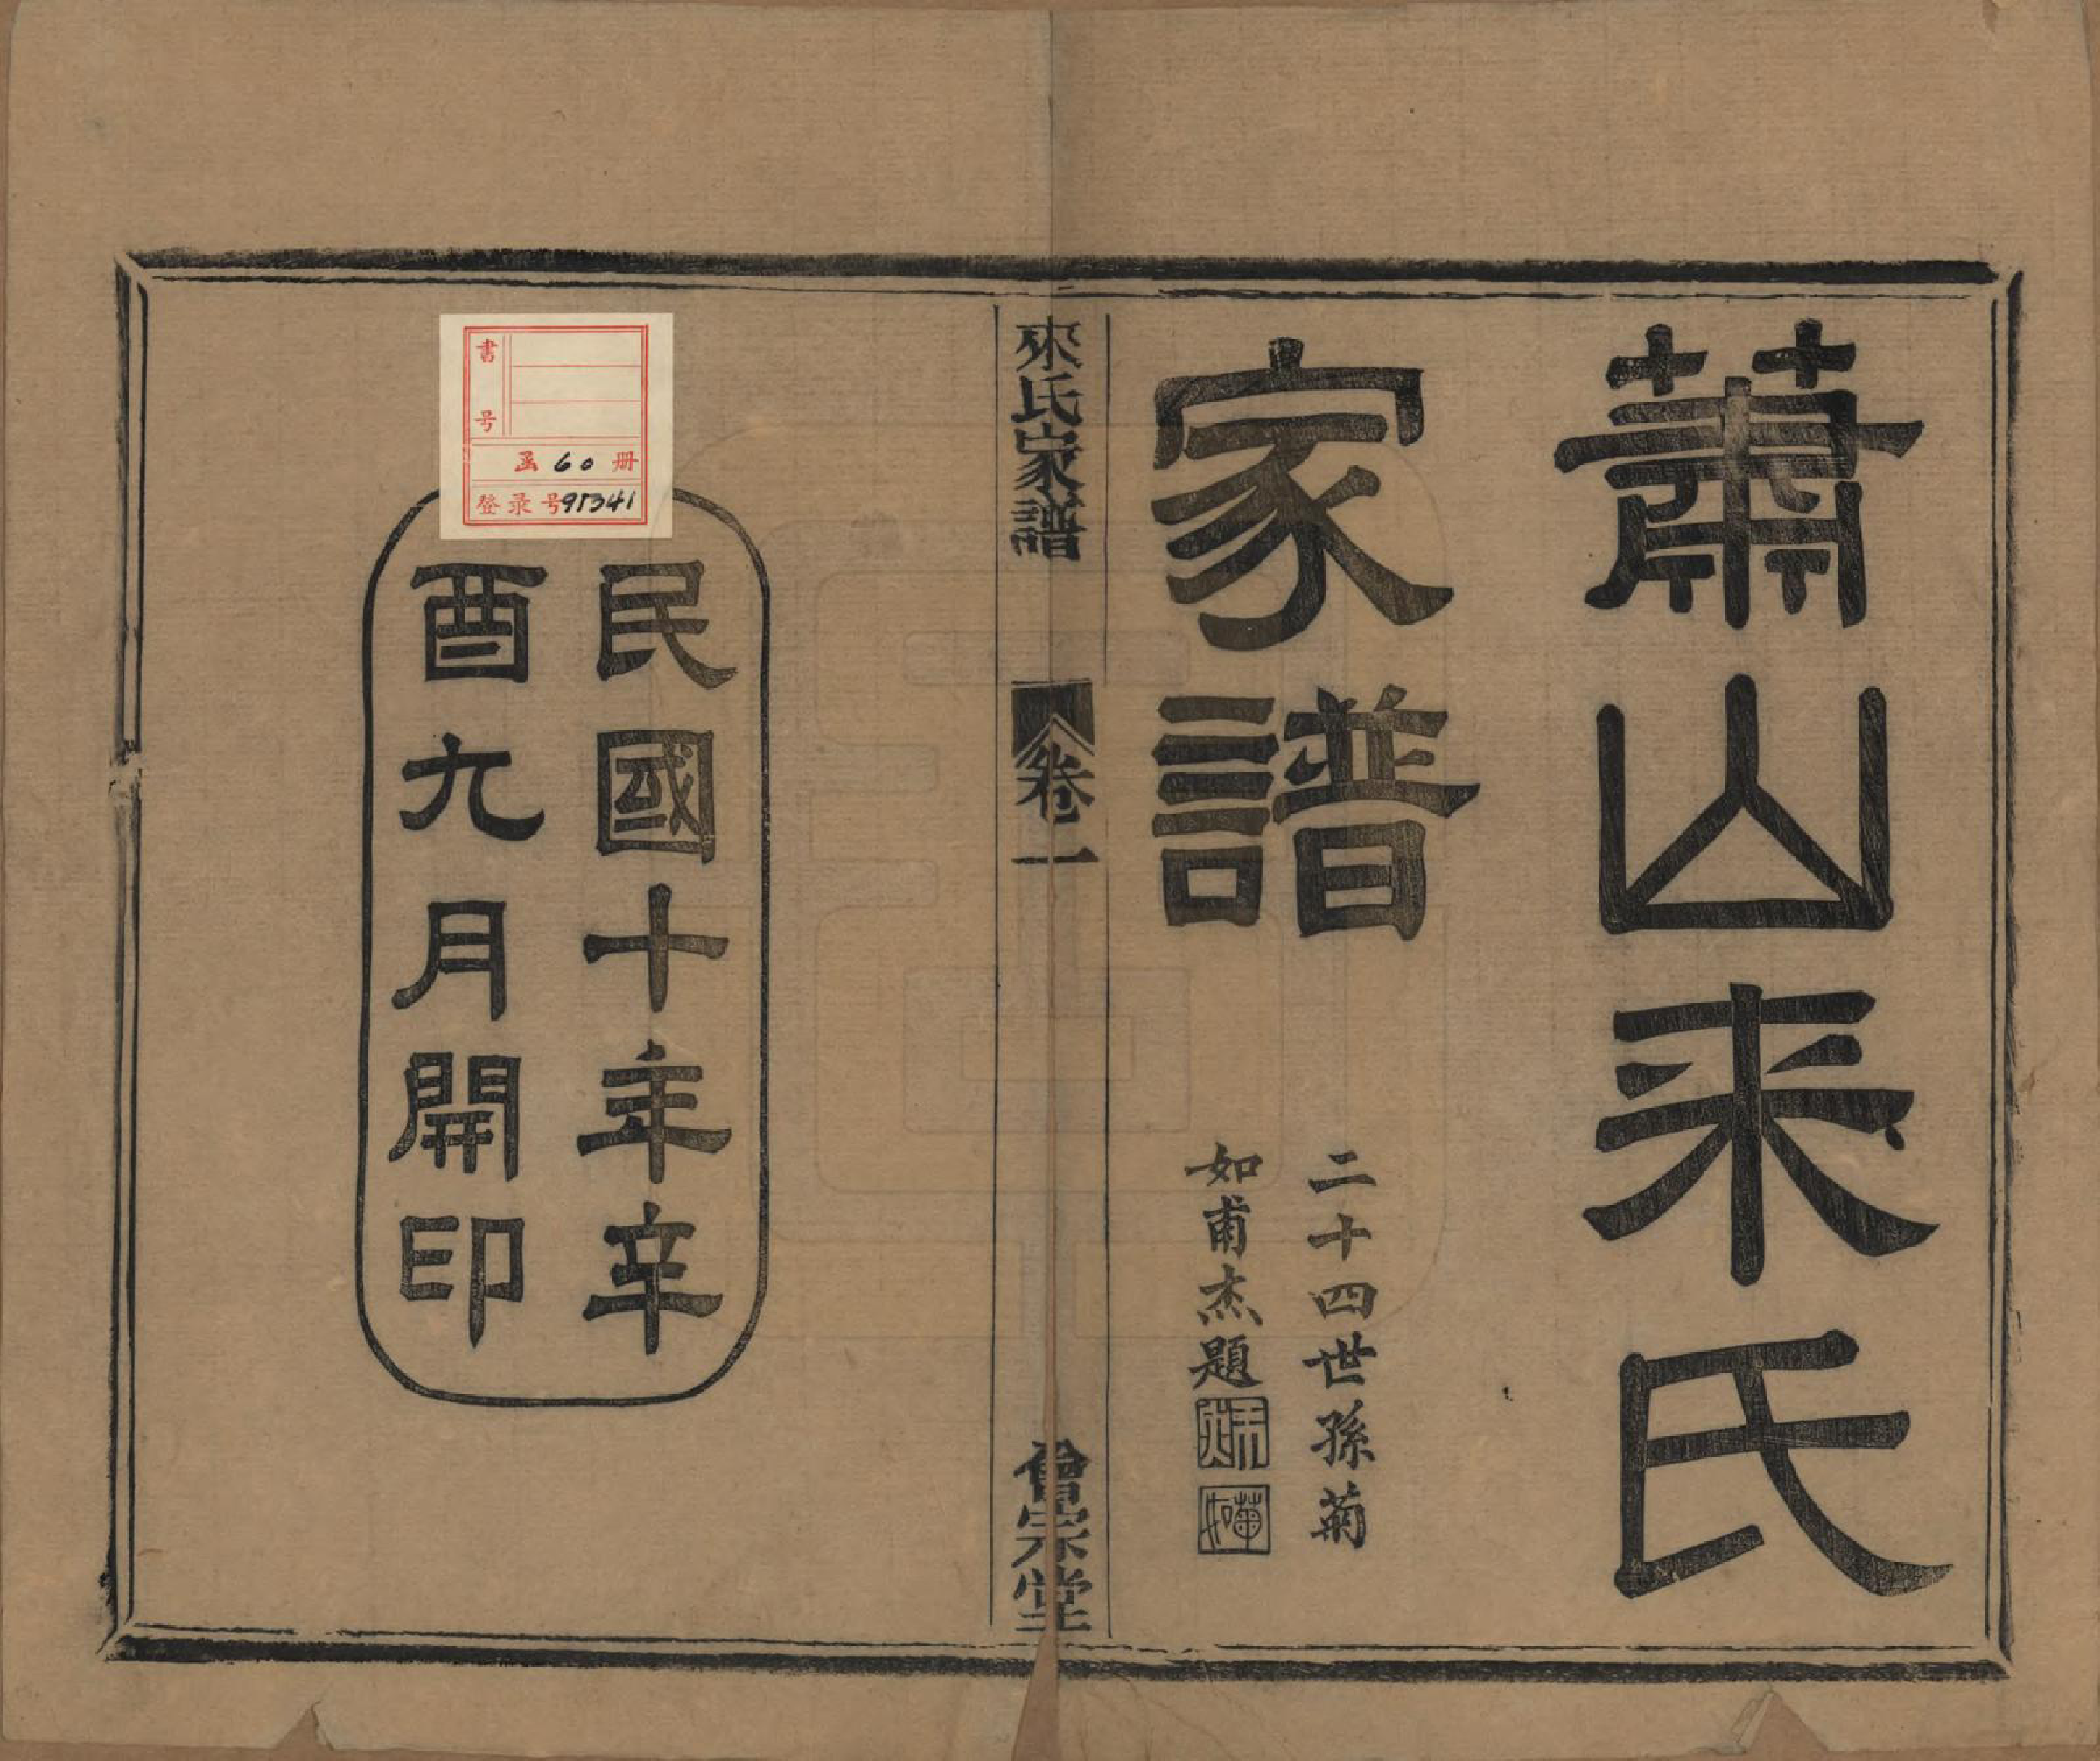 蕭山来氏
家譜
二十四世孫菊
如甫杰題
來氏家譜
卷一
會宗堂
民國十年辛
酉九月開印
書号
函60册
登录号95341